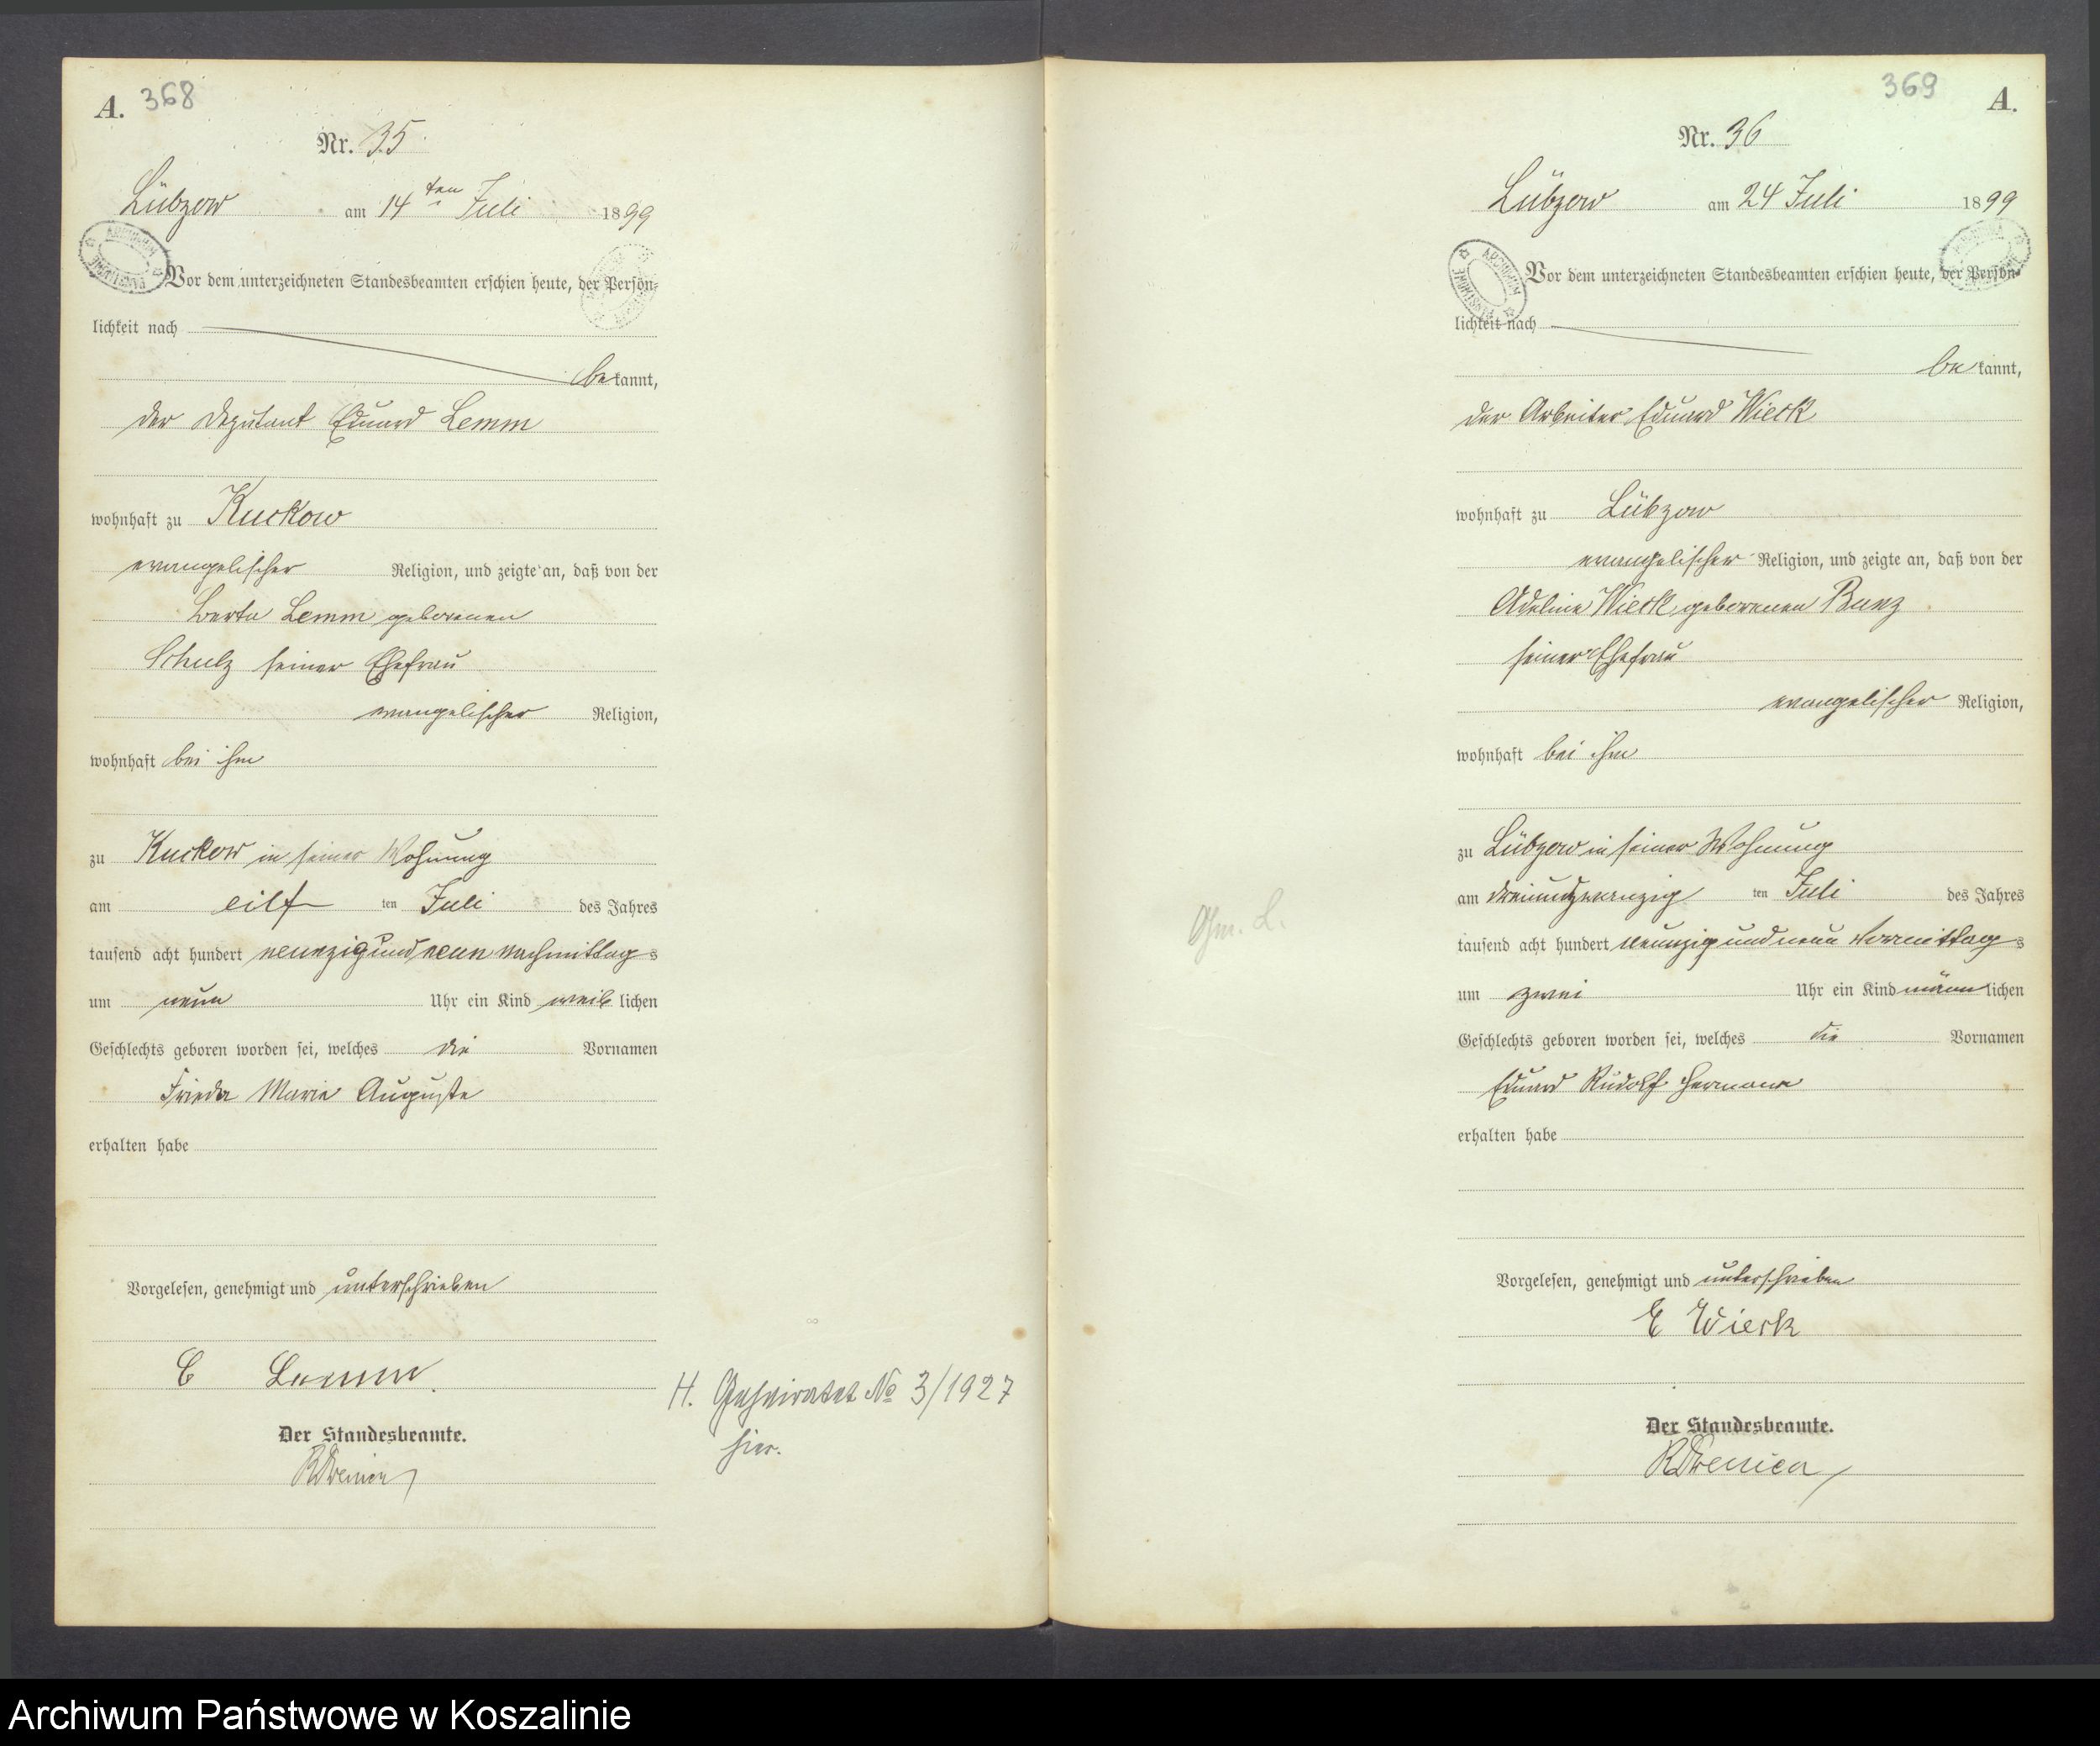 A. 368
Nr. 35
Lübzow am 14ten Juli 1899
Vor dem unterzeichneten Standesbeamten erschien heute, der Persön-
lichkeit nach
bekannt,
der Deputant Eduard Lemm
wohnhaft zu Kuckow
evangelischer Religion, und zeigte an, daß von der
Berta Lemm geborenen
Schulz seiner Ehefrau
evangelischer Religion,
wohnhaft bei ihm
zu Kuckow in seiner Wohnung
am eilf ten Juli des Jahres
tausend acht hundert neunzig und neun nachmittags
um neun Uhr ein Kind weiblichen
Geschlechts geboren worden sei, welches die Vornamen
Frieda Marie Auguste
erhalten habe
Vorgelesen, genehmigt und unterschrieben
E Lemm
Der Standesbeamte.
H. Geheiratet No 3/1927
hier.
369 A.
Nr. 36
Lübzow am 24 Juli 1899
Vor dem unterzeichneten Standesbeamten erschien heute, der Persön-
lichkeit nach
bekannt,
der Arbeiter Eduard Wieck
wohnhaft zu Lübzow
evangelischer Religion, und zeigte an, daß von der
Adeline Wieck geborenen Bunz
seiner Ehefrau
evangelischer Religion,
wohnhaft bei ihm
zu Lübzow in seiner Wohnung
am dreiundzwanzig ten Juli des Jahres
tausend acht hundert neunzig und neun Vormittags
um zwei Uhr ein Kind männlichen
Geschlechts geboren worden sei, welches die Vornamen
Eduard Rudolf Hermann
erhalten habe
Vorgelesen, genehmigt und unterschrieben
E Wieck
Der Standesbeamte.
Archiwum Państwowe w Koszalinie